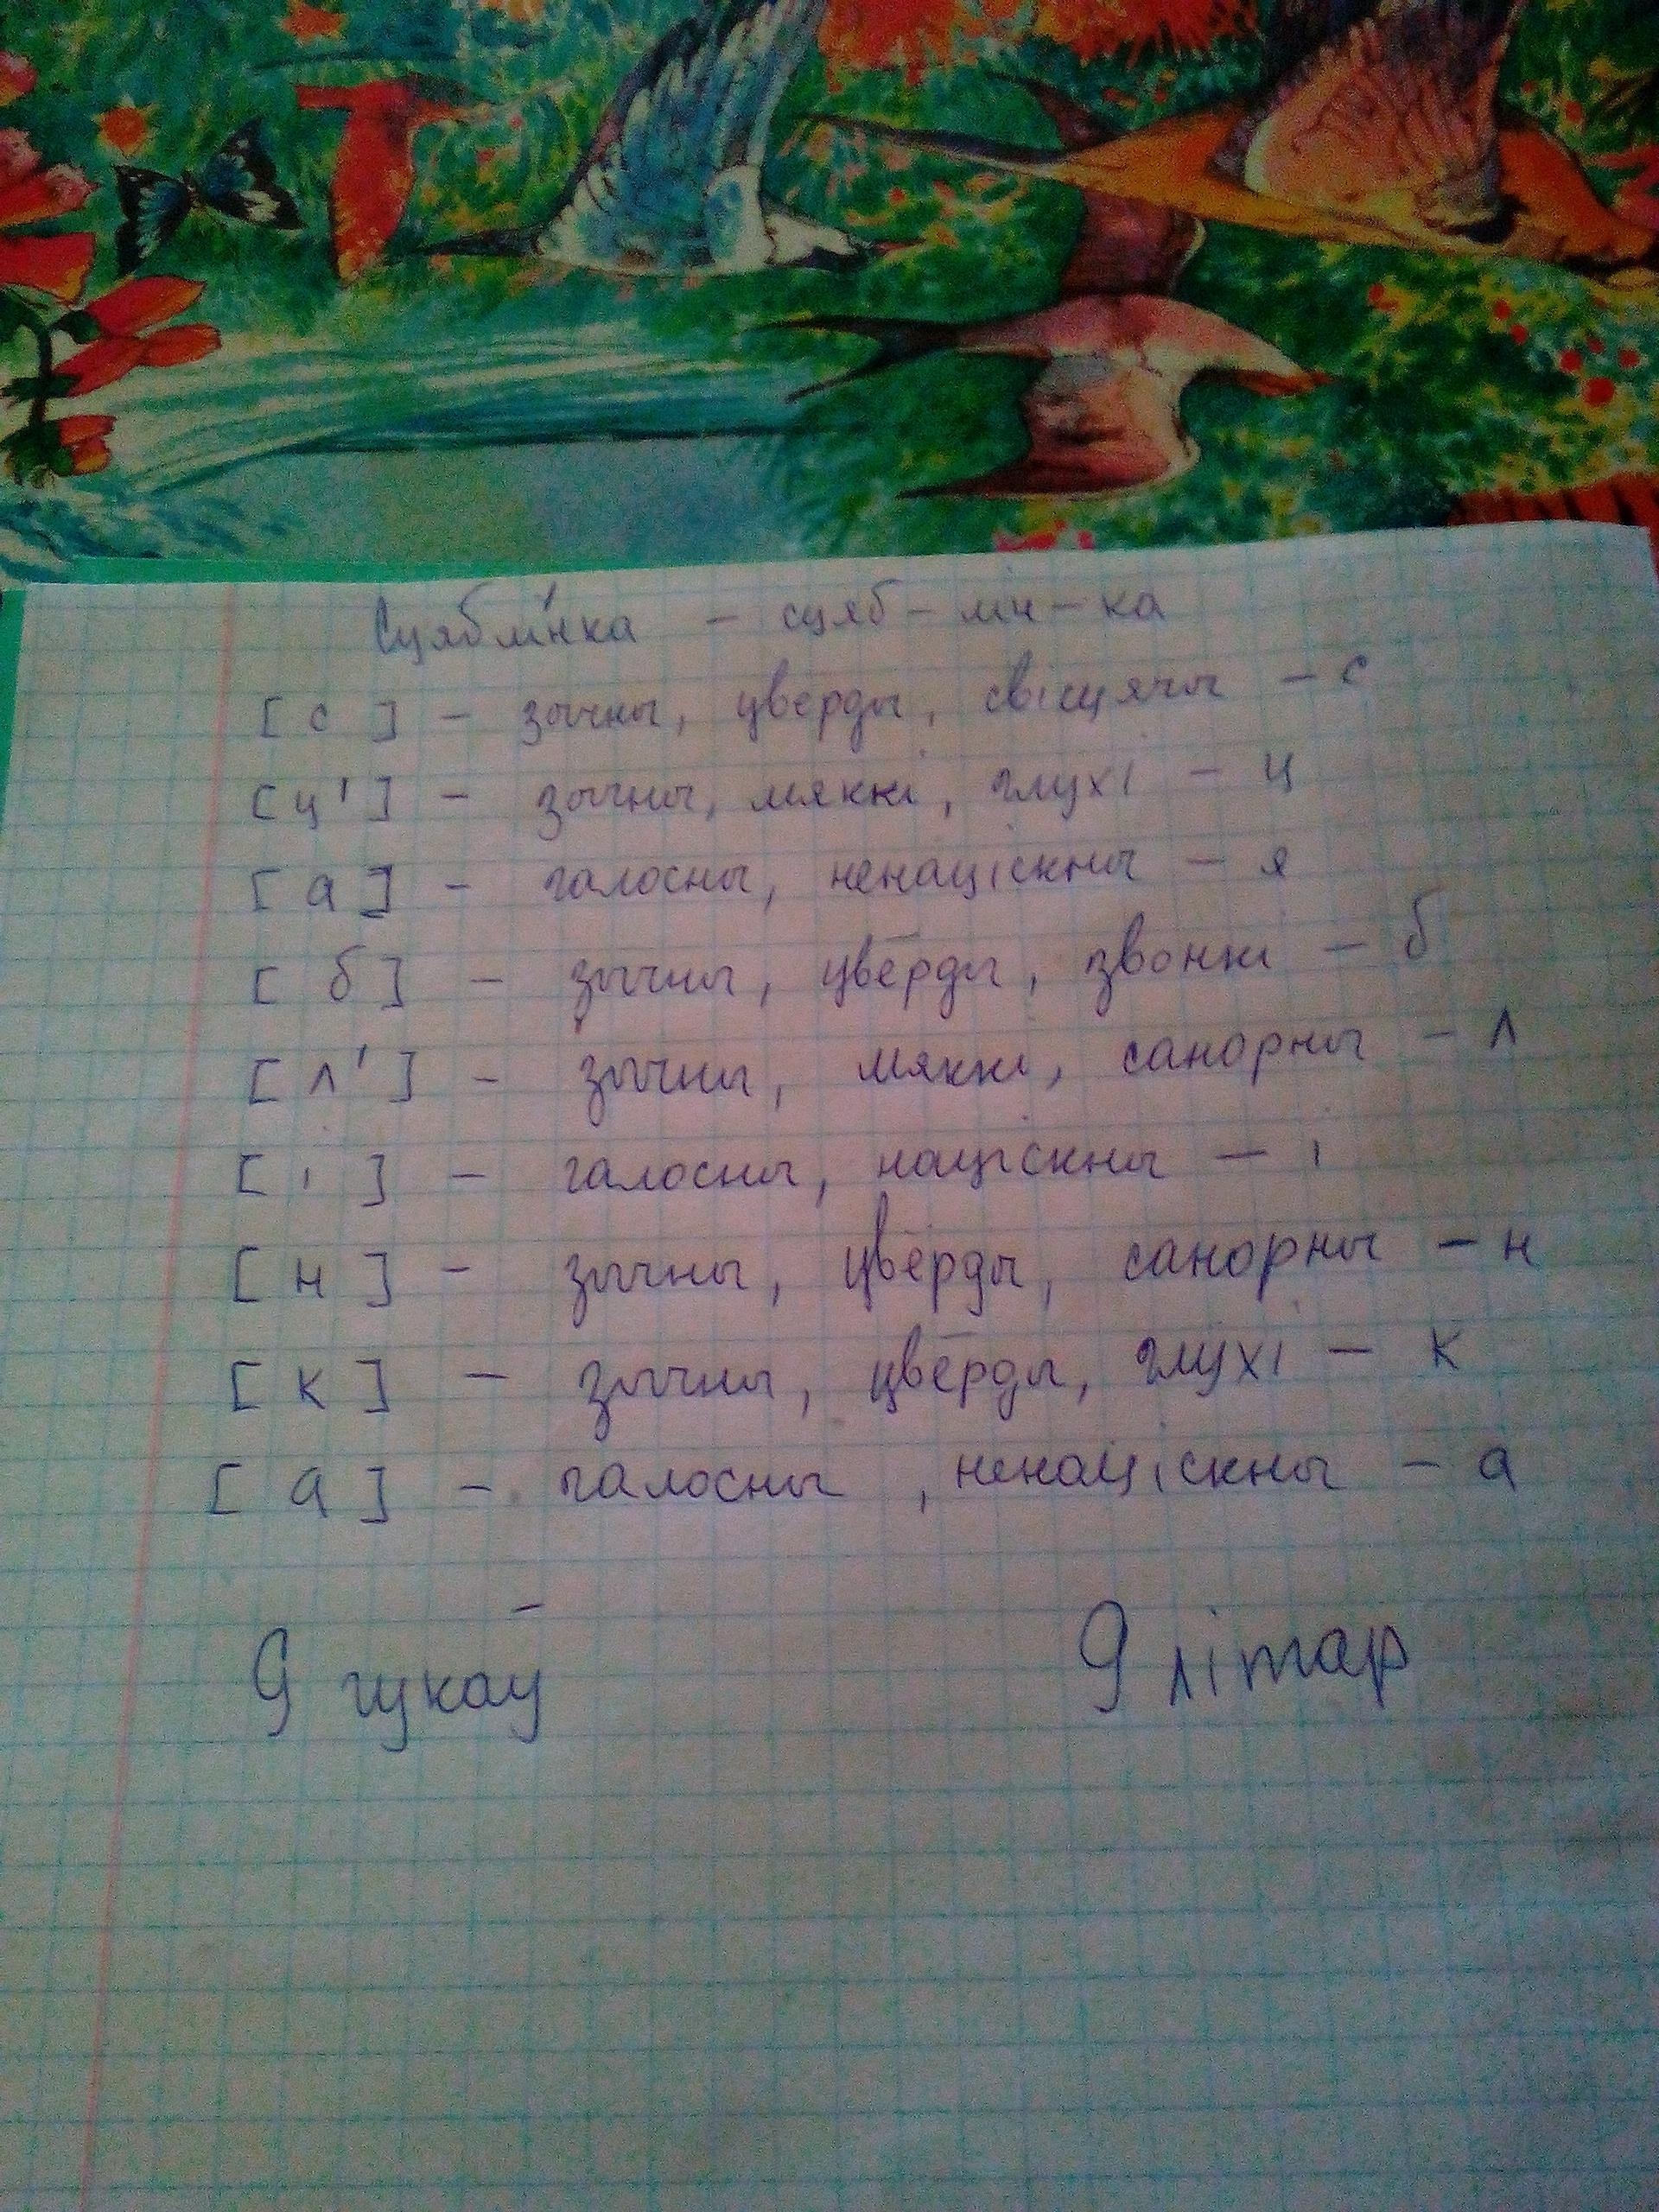 Сцяблі́нка - сцяб - лін - ка
[с] - зычны, цвёрды, свісцячы - с
[ц'] - зычны, мяккі, глухі - ц
[а] - галосны, ненаціскны - я
[б] - зычны, цвёрды, звонкі - б
[л'] - зычны, мяккі, санорны - л
[і] - галосны, націскны - і
[н] - зычны, цвёрды, санорны - н
[к] - зычны, цвёрды, глухі - к
[а] - галосны, ненаціскны - а
9 гукаў 9 літар